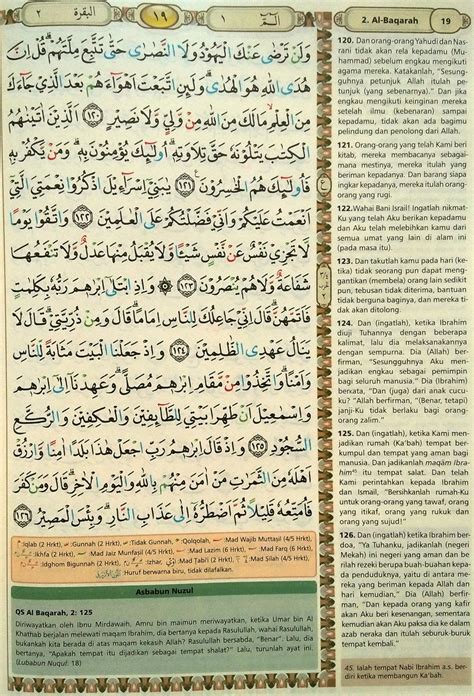 ٢ البقرة
١٩
الم ١
2. Al-Baqarah 19
وَلَنْ تَرْضٰى عَنْكَ الْيَهُوْدُ وَلَا النَّصٰرٰى حَتّٰى تَتَّبِعَ مِلَّتَهُمْ ۗ قُلْ اِنَّ
هُدَى اللّٰهِ هُوَ الْهُدٰى ۗ وَلَىِٕنِ اتَّبَعْتَ اَهْوَاۤءَهُمْ بَعْدَ الَّذِيْ جَاۤءَكَ
مِنَ الْعِلْمِ ۙ مَا لَكَ مِنَ اللّٰهِ مِنْ وَّلِيٍّ وَّلَا نَصِيْرٍ ١٢٠ اَلَّذِيْنَ اٰتَيْنٰهُمُ
الْكِتٰبَ يَتْلُوْنَهٗ حَقَّ تِلَاوَتِهٖ ۗ اُولٰۤىِٕكَ يُؤْمِنُوْنَ بِهٖ ۗ وَمَنْ يَّكْفُرْ بِهٖ
فَاُولٰۤىِٕكَ هُمُ الْخٰسِرُوْنَ ١٢١ يٰبَنِيْٓ اِسْرَاۤءِيْلَ اذْكُرُوْا نِعْمَتِيَ الَّتِيْٓ
اَنْعَمْتُ عَلَيْكُمْ وَاَنِّيْ فَضَّلْتُكُمْ عَلَى الْعٰلَمِيْنَ ١٢٢ وَاتَّقُوْا يَوْمًا
لَّا تَجْزِيْ نَفْسٌ عَنْ نَّفْسٍ شَيْـًٔا وَّلَا يُقْبَلُ مِنْهَا عَدْلٌ وَّلَا تَنْفَعُهَا
شَفَاعَةٌ وَّلَا هُمْ يُنْصَرُوْنَ ١٢٣ ۞ وَاِذِ ابْتَلٰٓى اِبْرٰهٖمَ رَبُّهٗ بِكَلِمٰتٍ
فَاَتَمَّهُنَّ ۗ قَالَ اِنِّيْ جَاعِلُكَ لِلنَّاسِ اِمَامًا ۗ قَالَ وَمِنْ ذُرِّيَّتِيْ ۗ قَالَ لَا
يَنَالُ عَهْدِى الظّٰلِمِيْنَ ١٢٤ وَاِذْ جَعَلْنَا الْبَيْتَ مَثَابَةً لِّلنَّاسِ
وَاَمْنًا ۗ وَاتَّخِذُوْا مِنْ مَّقَامِ اِبْرٰهٖمَ مُصَلًّى ۗ وَعَهِدْنَآ اِلٰٓى اِبْرٰهٖمَ
وَاِسْمٰعِيْلَ اَنْ طَهِّرَا بَيْتِيَ لِلطَّاۤىِٕفِيْنَ وَالْعٰكِفِيْنَ وَالرُّكَّعِ
السُّجُوْدِ ١٢٥ وَاِذْ قَالَ اِبْرٰهٖمُ رَبِّ اجْعَلْ هٰذَا بَلَدًا اٰمِنًا وَّارْزُقْ
اَهْلَهٗ مِنَ الثَّمَرٰتِ مَنْ اٰمَنَ مِنْهُمْ بِاللّٰهِ وَالْيَوْمِ الْاٰخِرِ ۗ قَالَ وَمَنْ كَفَرَ
فَاُمَتِّعُهٗ قَلِيْلًا ثُمَّ اَضْطَرُّهٗٓ اِلٰى عَذَابِ النَّارِ ۗ وَبِئْسَ الْمَصِيْرُ ١٢٦
:Iqlab (2 Hrkt), :Gunnah (2 Hrkt), :Tidak Gunnah, :Qolqolah, :Mad Wajib Muttasil (4/5 Hrkt),
:Ikhfa (2 Hrkt), :Mad Jaiz Munfasil (4/5 Hrkt), :Mad Lazim (6 Hrkt), :Mad Farq (6 Hrkt)
:Idghom Bigunnah (2 Hrkt), :Mad Tabi'i (2 Hrkt), :Mad Silah (4/5 Hrkt),
:Huruf berwarna biru, tidak dilafalkan.
Asbabun Nuzul
QS Al Baqarah, 2: 125
Diriwayatkan oleh Ibnu Mirdawaih, Amru bin maimun meriwayatkan, ketika Umar bin Al
Khathab berjalan melewati maqam Ibrahim, dia bertanya kepada Rasulullah, wahai Rasulullah,
bukankah kita berada di atas maqam kekasih Allah? Rasulullah bersabda, "Benar". Lalu, dia
bertanya, "Apakah tempat itu dijadikan sebagai tempat shalat?" Lalu, turunlah ayat ini.
(Lubabun Nuzul: 18)
120. Dan orang-orang Yahudi dan Nas-
rani tidak akan rela kepadamu (Mu-
hammad) sebelum engkau mengikuti
agama mereka. Katakanlah, "Sesung-
guhnya petunjuk Allah itulah pe-
tunjuk (yang sebenarnya)." Dan jika
engkau mengikuti keinginan mereka
setelah ilmu (kebenaran) sampai
kepadamu, tidak akan ada bagimu
pelindung dan penolong dari Allah.
121. Orang-orang yang telah Kami beri
kitab, mereka membacanya sebagai-
mana mestinya, mereka itulah yang
beriman kepadanya. Dan barang siapa
ingkar kepadanya, mereka itulah orang-
orang yang rugi.
122. Wahai Bani Israil! Ingatlah nikmat-
Ku yang telah Aku berikan kepadamu
dan Aku telah melebihkan kamu dari
semua umat yang lain di alam ini
(pada masa itu).
123. Dan takutlah kamu pada hari (ke-
tika) tidak seorang pun dapat mengg-
antikan (membela) orang lain sedikit
pun, tebusan tidak diterima, bantuan
tidak berguna baginya, dan mereka ti-
dak akan ditolong.
124. Dan (ingatlah), ketika Ibrahim
diuji Tuhannya dengan beberapa
kalimat, lalu dia melaksanakannya
dengan sempurna. Dia (Allah) ber-
firman, "Sesungguhnya Aku men-
jadikan engkau sebagai pemimpin
bagi seluruh manusia." Dia (Ibrahim)
berkata, "Dan (juga) dari anak cucu-
ku?" Allah berfirman, "(Benar, tetapi)
janji-Ku tidak berlaku bagi orang-
orang zalim."
125. Dan (ingatlah), ketika Kami men-
jadikan rumah (Ka'bah) tempat ber-
kumpul dan tempat yang aman bagi
manusia. Dan jadikanlah maqām Ibra-
him⁴⁵ itu tempat salat. Dan telah
Kami perintahkan kepada Ibrahim
dan Ismail, "Bersihkanlah rumah-Ku
untuk orang-orang yang tawaf, orang
yang itikaf, orang yang rukuk dan
orang yang sujud!"
126. Dan (ingatlah) ketika Ibrahim ber-
doa, "Ya Tuhanku, jadikanlah (negeri
Mekah) ini negeri yang aman dan be-
rilah rezeki berupa buah-buahan kepa-
da penduduknya, yaitu di antara mere-
ka yang beriman kepada Allah dan
hari kemudian," Dia (Allah) berfir-
man, "Dan kepada orang yang kafir
akan Aku beri kesenangan, sementara
kemudian akan Aku paksa dia ke dalam
azab neraka dan itulah seburuk-buruk
tempat kembali."
45. Ialah tempat Nabi Ibrahim a.s. ber-
diri ketika membangun Ka'bah.